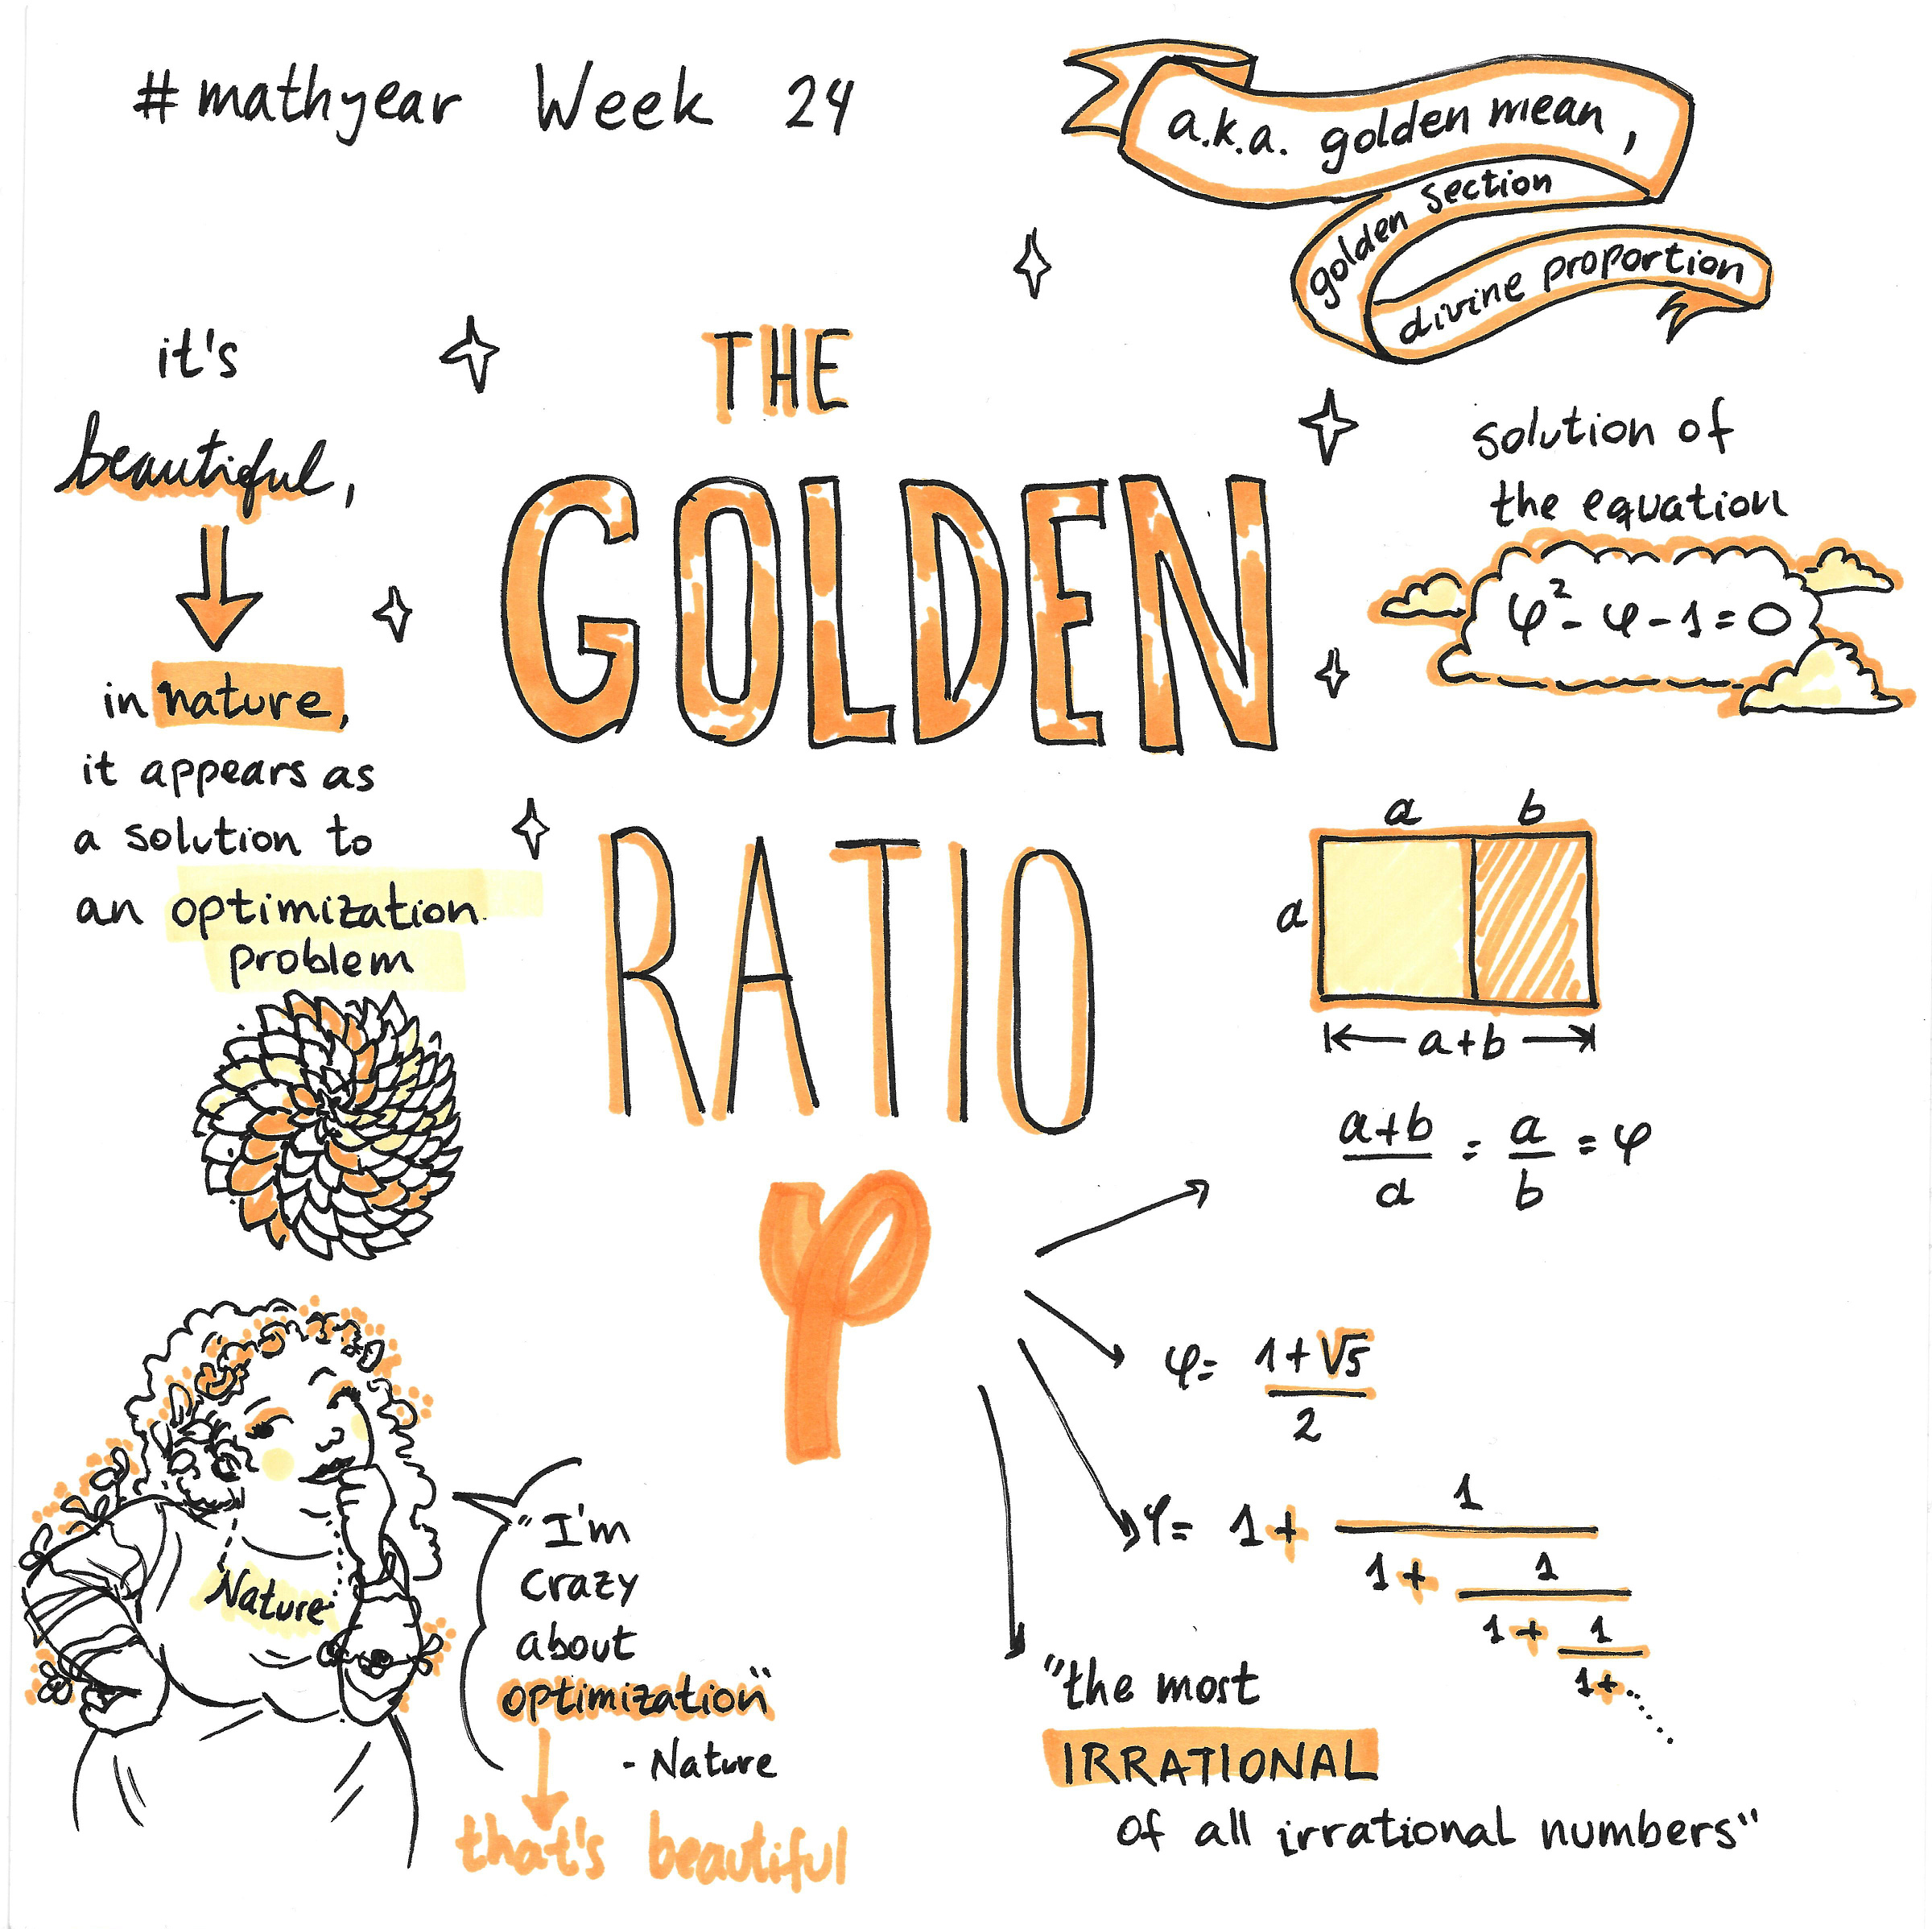 #mathyear Week 24
a.k.a. golden mean,
golden section
divine proportion
it's
beautiful,
in nature,
it appears as
a solution to
an optimization
problem
THE
GOLDEN
RATIO
φ
solution of
the equation
φ² - φ - 1 = 0
a b
a
a+b
a+b = a = φ
a b
φ = 1+√5
2
φ = 1 + 1
1 + 1
1 + 1
1 + ......
"the most
IRRATIONAL
of all irrational numbers"
Nature
"I'm
crazy
about
optimization"
- Nature
that's beautiful